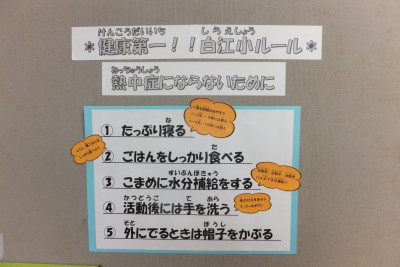 けんこうだいいち しらえしょう
＊健康第一！！白江小ルール＊
ねっちゅうしょう
熱中症にならないために
ね
① たっぷり寝る
た
② ごはんをしっかり食べる
すいぶんほきゅう
③ こまめに水分補給をする
かつどうご て あら
④ 活動後には手を洗う
そと ぼうし
⑤ 外にでるときは帽子をかぶる